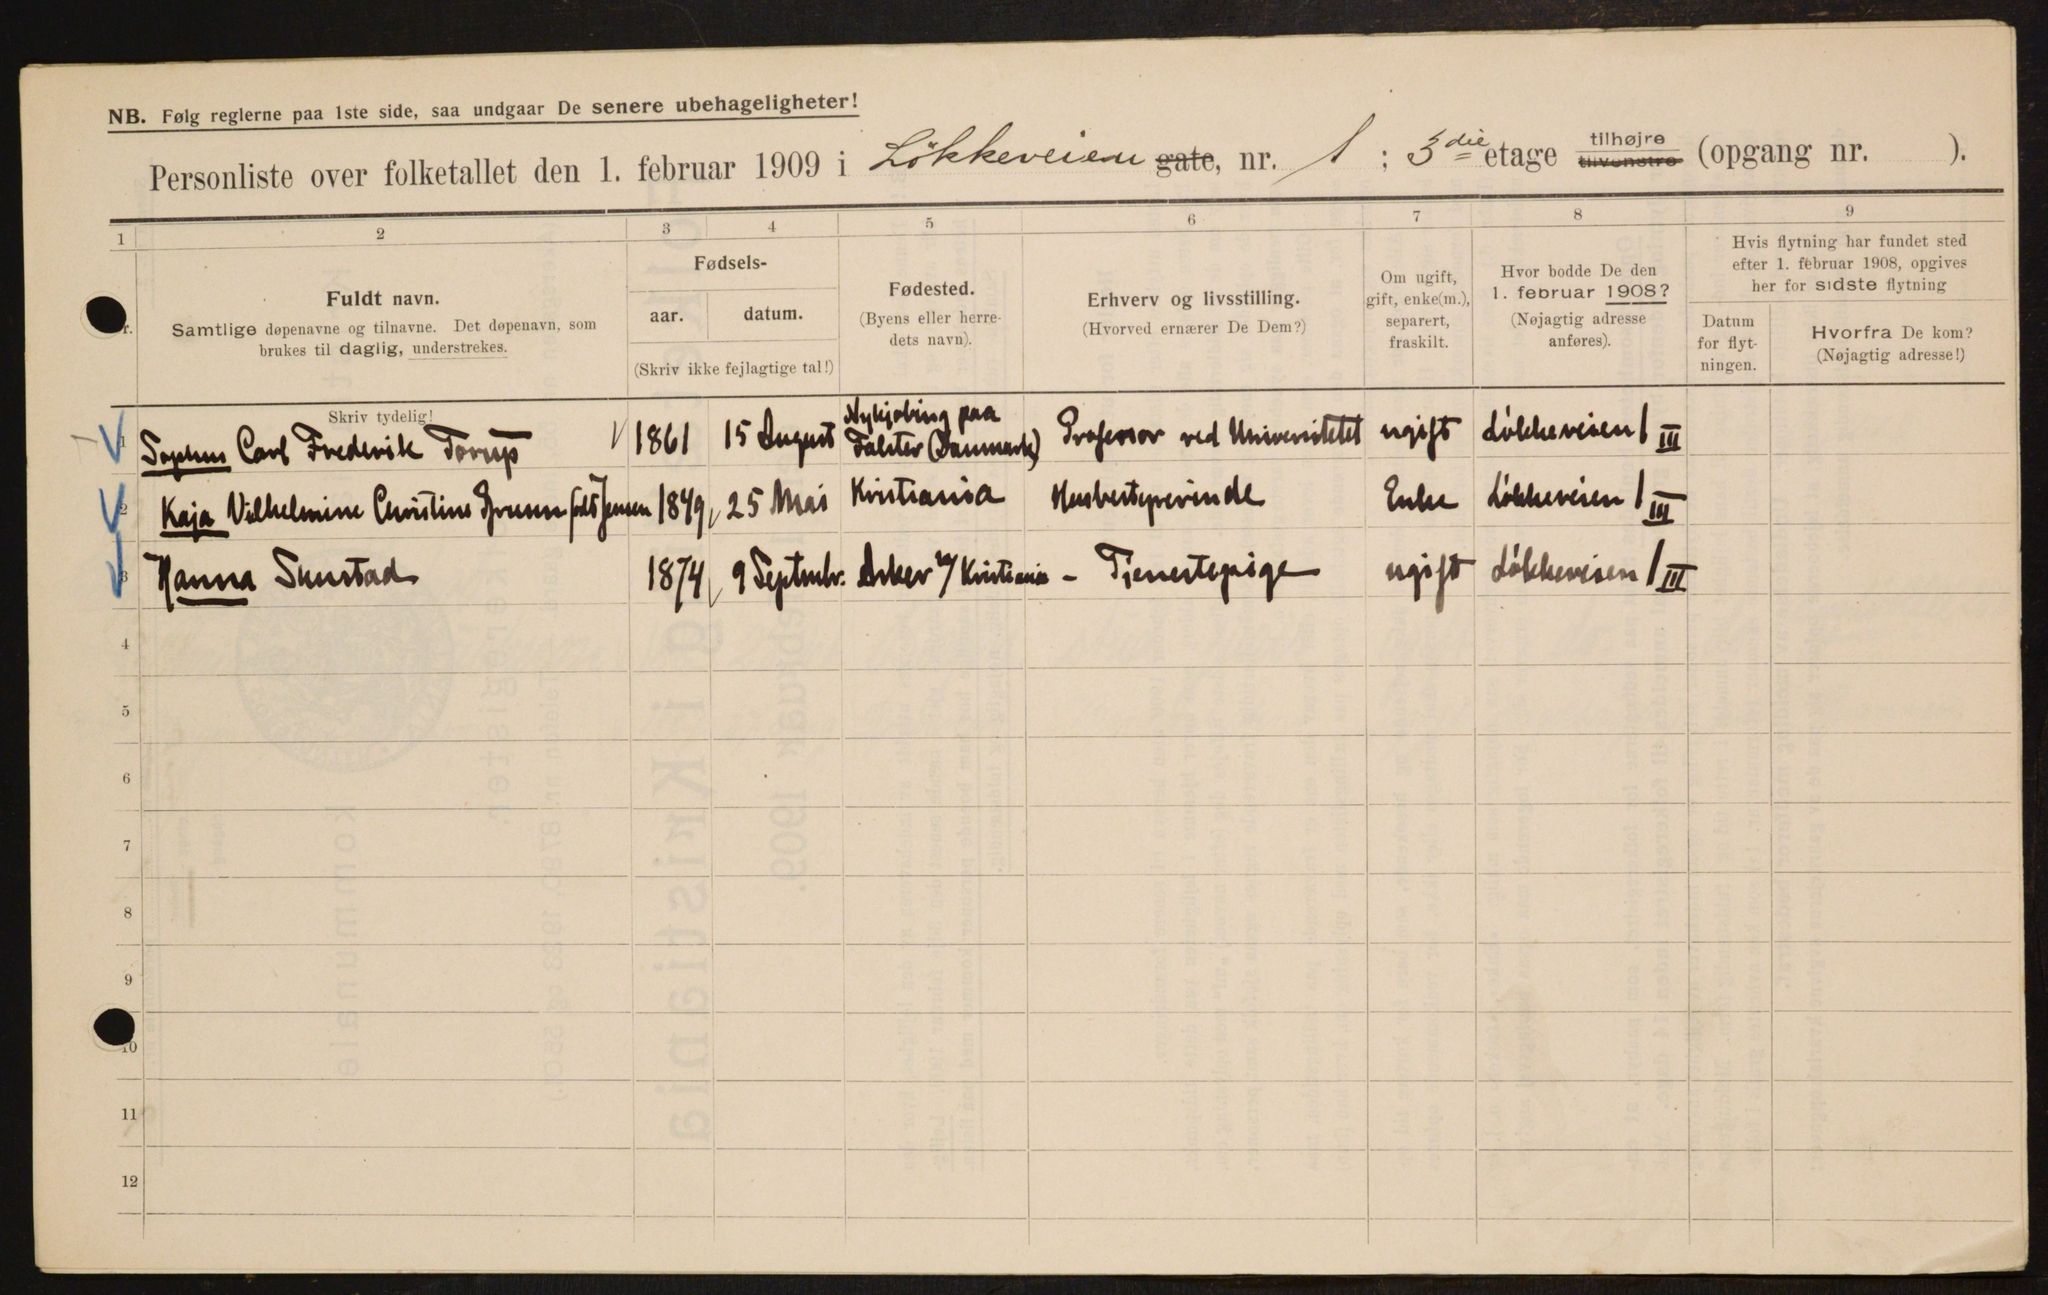 NB. Følg reglerne paa 1ste side, saa undgaar De senere ubehageligheter!
Personliste over folketallet den 1. februar 1909 i Løkkeveien gate, nr. 1 ; 3die etage tilhøjre tilvenstre (opgang nr. ).
1 2 3 4 5 6 7 8 9
Fuldt navn.
Samtlige døpenavne og tilnavne. Det døpenavn, som
brukes til daglig, understrekes.
Skriv tydelig!
Fødsels-
aar. datum.
(Skriv ikke fejlagtige tal!)
Fødested.
(Byens eller herre-
dets navn).
Erhverv og livsstilling.
(Hvorved ernærer De Dem?)
Om ugift,
gift, enke(m.),
separert,
fraskilt.
Hvor bodde De den
1. februar 1908?
(Nøjagtig adresse
anføres).
Hvis flytning har fundet sted
efter 1. februar 1908, opgives
her for sidste flytning
Datum
for flyt-
ningen.
Hvorfra De kom?
(Nøjagtig adresse!)
1 Sophus Carl Frederik Torup 1861 15 August Nykjøbing paa
Falster (Danmark) Professor ved Universitetet ugift Løkkeveien 1 III
2 Kaja Vilhelmine Christine født Jensen 1849 25 Mai Kristiania Husbestyrerinde Enke Løkkeveien 1 III
3 Hanna 1874 9 Septmbr. Asker v/ Kristiania - Tjenestepige ugift Løkkeveien 1 III
4
5
6
7
8
9
10
11
12